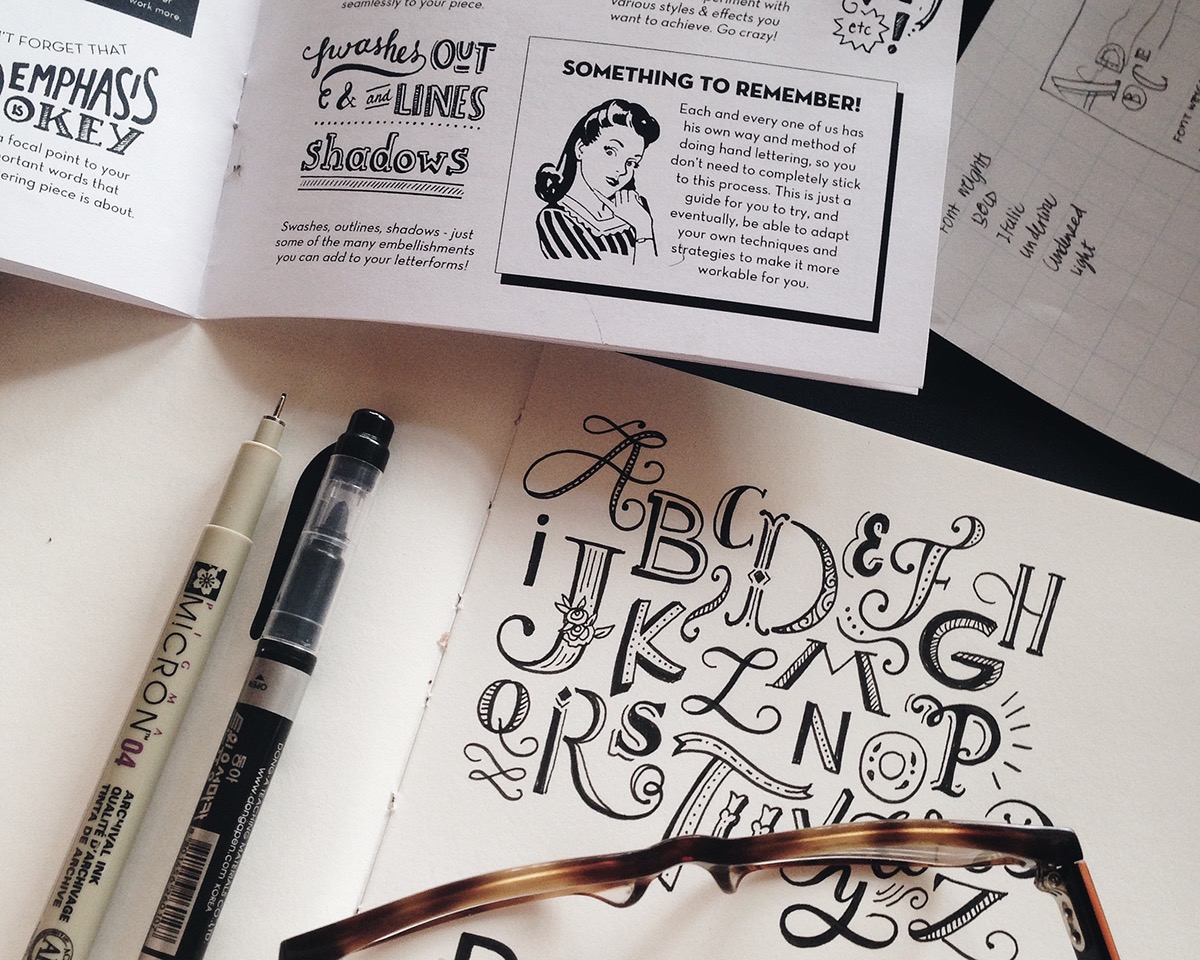 work more.
'T FORGET THAT
EMPHASIS
IS
KEY
a focal point to your
ortant words that
ering piece is about.
seamlessly to your piece.
swashes OUT
& and LINES
shadows
Swashes, outlines, shadows - just
some of the many embellishments
you can add to your letterforms!
eriment with
various styles & effects you
want to achieve. Go crazy!
etc
!
SOMETHING TO REMEMBER!
Each and every one of us has
his own way and method of
doing hand lettering, so you
don't need to completely stick
to this process. This is just a
guide for you to try, and
eventually, be able to adapt
your own techniques and
strategies to make it more
workable for you.
FONT
FONT WEIGHTS
BOLD
Italic
underline
Condensed
light
PIGMA
MICRON™ 04
ARCHIVAL INK
QUALITÉ D'ARCHIVAGE
TINTA DE ARCHIVE
OPEN
동아
DONG-A TEACHING MATERIALS CO., LTD
www.dongapen.com KOREA
A B C D E F H
i J K L M G
Q R S N O P
T U
y Z